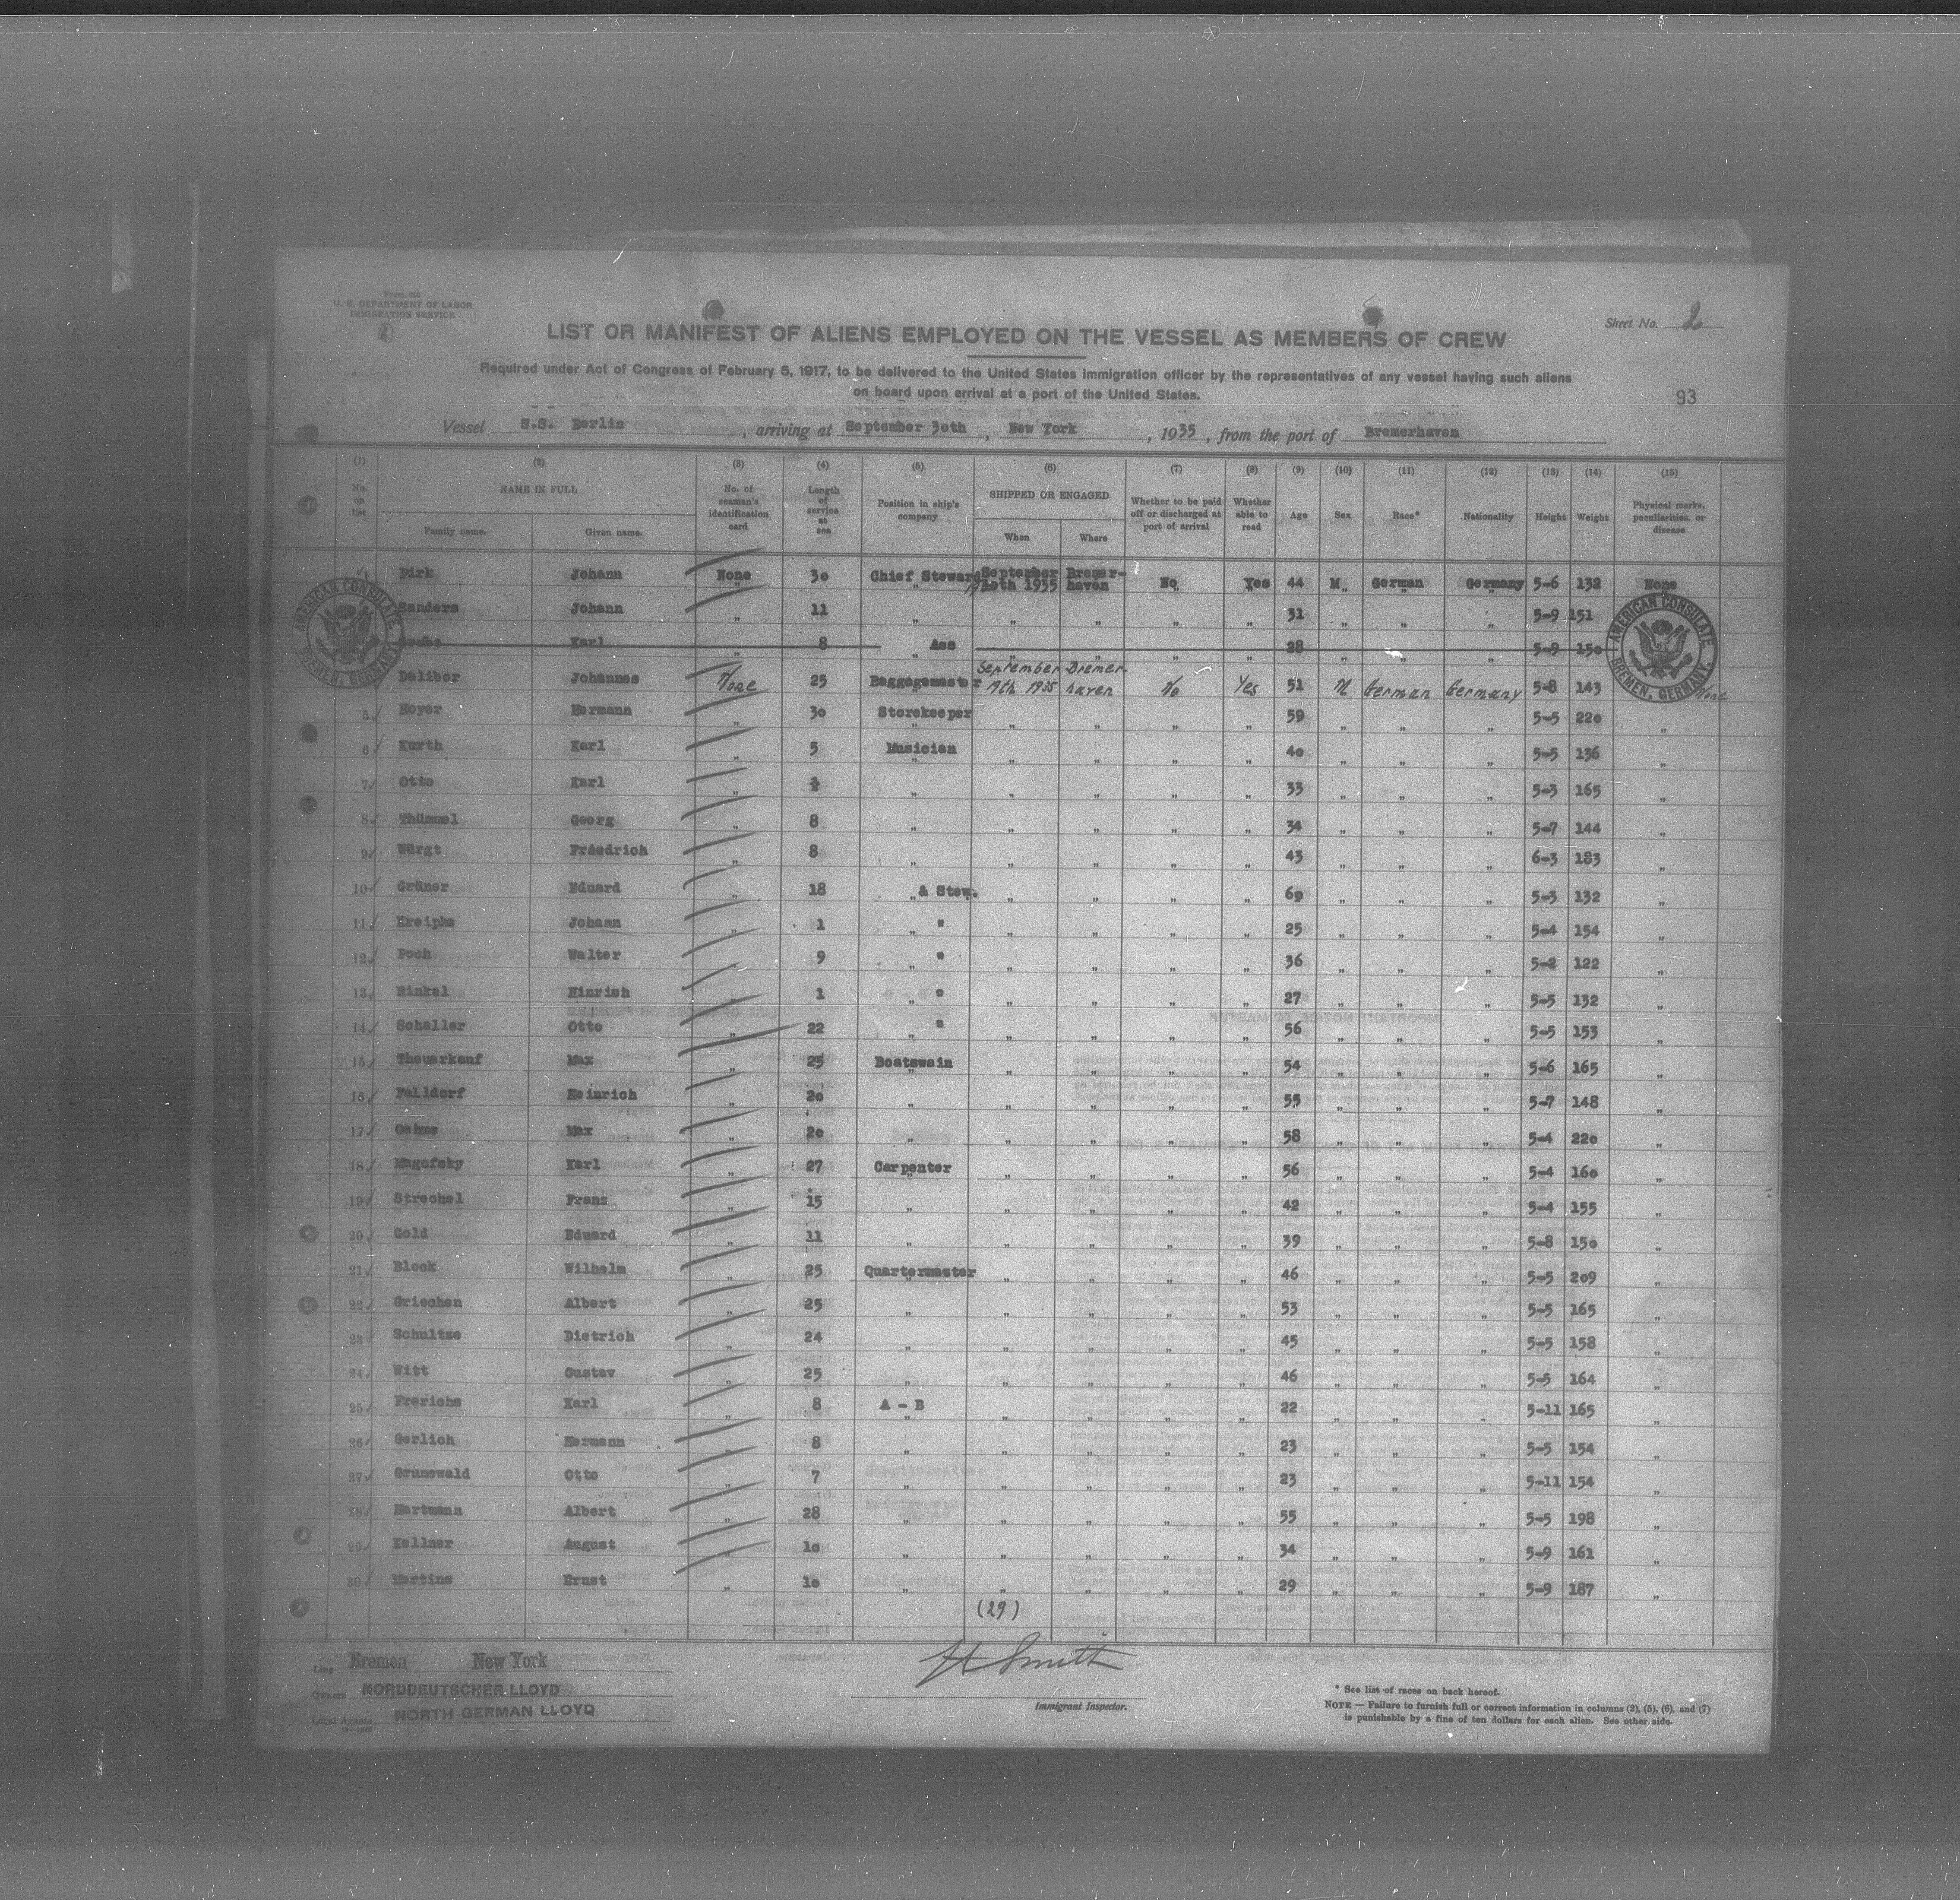 Form 680
U. S. DEPARTMENT OF LABOR
IMMIGRATION SERVICE
LIST OR MANIFEST OF ALIENS EMPLOYED ON THE VESSEL AS MEMBERS OF CREW
Sheet No. 2
Required under Act of Congress of February 5, 1917, to be delivered to the United States immigration officer by the representatives of any vessel having such aliens
on board upon arrival at a port of the United States.
93
Vessel S.S. Berlin, arriving at September 30th, New York, 1935, from the port of Bremerhaven
(1) (2) (3) (4) (5) (6) (7) (8) (9) (10) (11) (12) (13) (14) (15)
No. on list. NAME IN FULL Family name. Given name. No. of seaman's identification card Length of service at sea Position in ship's company SHIPPED OR ENGAGED When Where Whether to be paid off or discharged at port of arrival Whether able to read Age Sex Race* Nationality Height Weight Physical marks, peculiarities, or disease
1 Pirk Johann None 30 Chief Steward September 19th 1935 Bremerhaven No Yes 44 M. German Germany 5-6 132 None
Sanders Johann " 11 " " " " " 31 " " " 5-9 151
Karl " 8 " Ass " " " " 28 " " " 5-9 150
Dalibor Johannes None 25 Baggagemaster September 19th 1935 Bremerhaven No Yes 51 M German Germany 5-8 143 None
5 Meyer Hermann " 30 Storekeeper " " " " 59 " " " 5-5 220 "
6 Kurth Karl " 5 Musician " " " " 40 " " " 5-5 136 "
7 Otto Karl " " " " " " 33 " " " 5-3 165 "
8 Thümmel Georg " 8 " " " " " 34 " " " 5-7 144 "
9 Würgt Friedrich " 8 " " " " " 43 " " " 6-3 183 "
10 Grüner Eduard " 18 " & Stew. " " " " 60 " " " 5-3 132 "
11 Kreipka Johann " 1 " " " " " " 25 " " " 5-4 154 "
12 Poch Walter " 9 " " " " " " 36 " " " 5-2 122 "
13 Rinkel Hinrich " 1 " " " " " " 27 " " " 5-5 132 "
14 Schaller Otto " 22 " " " " " " 56 " " " 5-5 153 "
15 Theuerkauf Max " 25 Boatswain " " " " 54 " " " 5-6 165 "
16 Falldorf Heinrich " 20 " " " " " 55 " " " 5-7 148 "
17 Oehme Max " 20 " " " " " 58 " " " 5-4 220 "
18 Magofsky Karl " 27 Carpenter " " " " 56 " " " 5-4 160 "
19 Strechel Franz " 15 " " " " " 42 " " " 5-4 155 "
20 Gold Eduard " 11 " " " " " 39 " " " 5-8 150 "
21 Block Wilhelm " 25 Quartermaster " " " " 46 " " " 5-5 209 "
22 Griechen Albert " 25 " " " " " 53 " " " 5-5 165 "
23 Schultze Dietrich " 24 " " " " " 45 " " " 5-5 158 "
24 Witt Gustav " 25 " " " " " 46 " " " 5-5 164 "
25 Frerichs Karl " 8 A - B " " " " 22 " " " 5-11 165 "
26 Gerlich Hermann " 8 " " " " " 23 " " " 5-5 154 "
27 Grunewald Otto " 7 " " " " " 23 " " " 5-11 154 "
28 Hartmann Albert " 28 " " " " " 55 " " " 5-5 198 "
29 Kellner August " 10 " " " " " 34 " " " 5-9 161 "
30 Martins Ernst " 10 " " " " " 29 " " " 5-9 187 "
AMERICAN CONSULATE, BREMEN, GERMANY.
AMERICAN CONSULATE, BREMEN, GERMANY.
(29)
Line Bremen New York
Owners NORDDEUTSCHER LLOYD
Local Agents NORTH GERMAN LLOYD
H Smith
Immigrant Inspector.
* See list of races on back hereof.
NOTE — Failure to furnish full or correct information in columns (2), (5), (6), and (7)
is punishable by a fine of ten dollars for each alien. See other side.